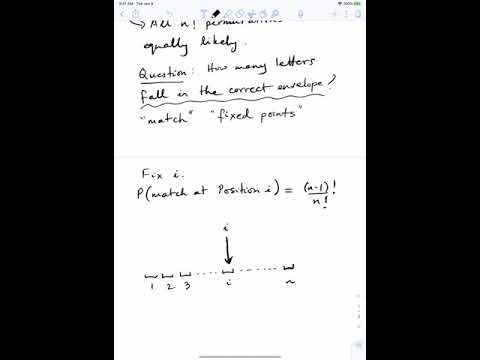 9:41 AM Tue Jan 9
→ All n! permutations
equally likely.
Question: How many letters
fall in the correct envelope?
"match" "fixed points"
Fix i.
P(match at Position i) = (n-1)!/n!
i
1 2 3 i n